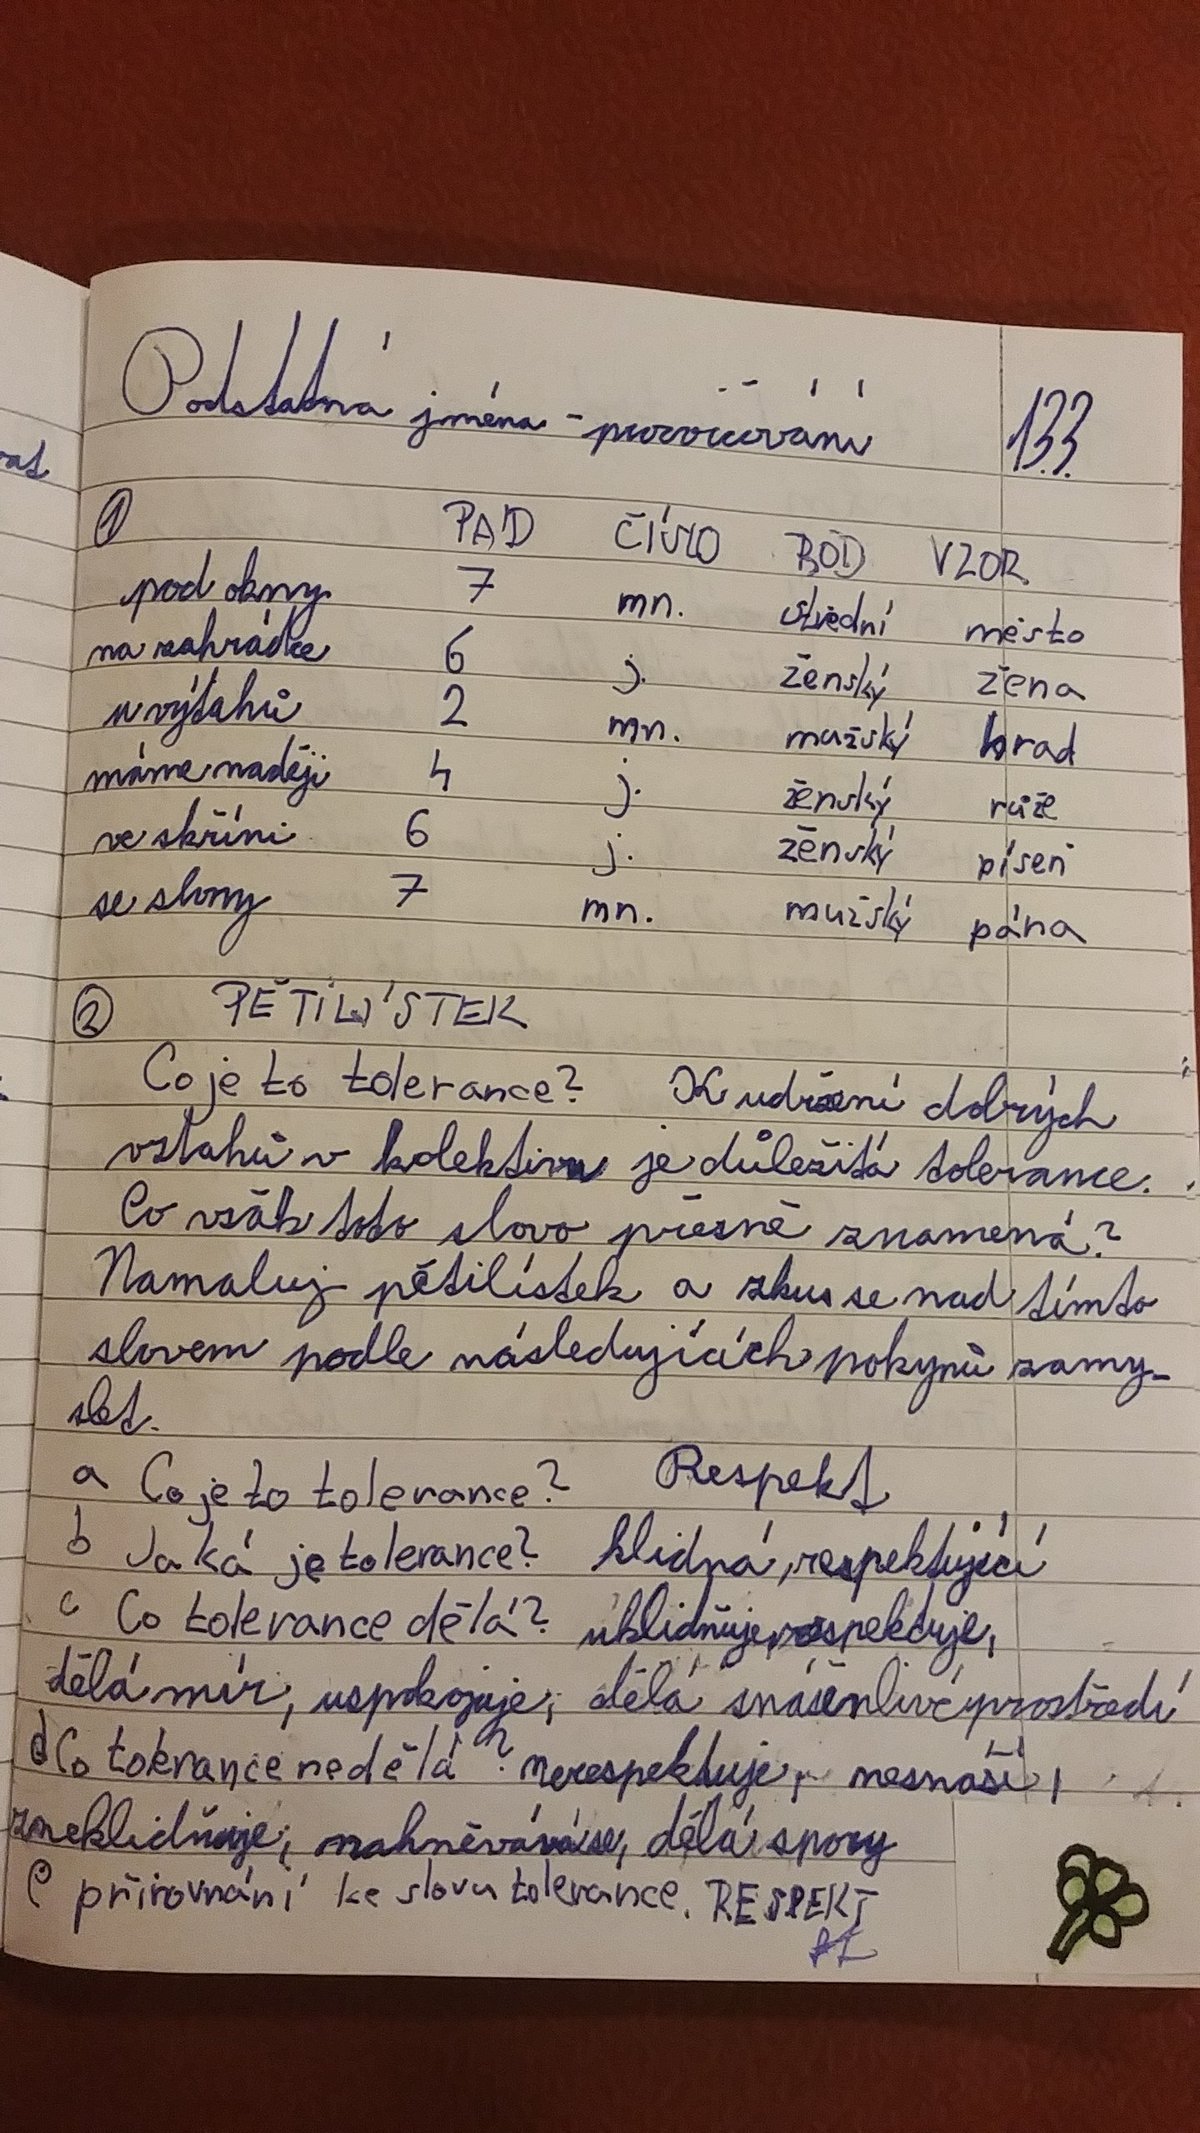 Podstatná jména - procvičování 13.3.
① PÁD ČÍSLO ROD VZOR
pod okny 7 mn. střední město
na zahrádce 6 j. ženský žena
u výtahů 2 mn. mužský hrad
máme naději 4 j. ženský růže
ve skříni 6 j. ženský píseň
se slony 7 mn. mužský pána
② PĚTILÍSTEK
Co je to tolerance? K udržení dobrých
vztahů v kolektivu je důležitá tolerance.
Co však toto slovo přesně znamená?
Namaluj pětilístek a zkus se nad tímto
slovem podle následujících pokynů zamy-
slet.
a Co je to tolerance? Respekt
b Jaká je tolerance? klidná, respektující
c Co tolerance dělá? uklidňuje, respektuje,
dělá mír, uspokojuje, dělá snášenlivé prostředí
d Co tolerance nedělá? nerespektuje, nesnáší,
zneklidňuje, dělá spory
e přirovnání ke slovu tolerance. RESPEKT